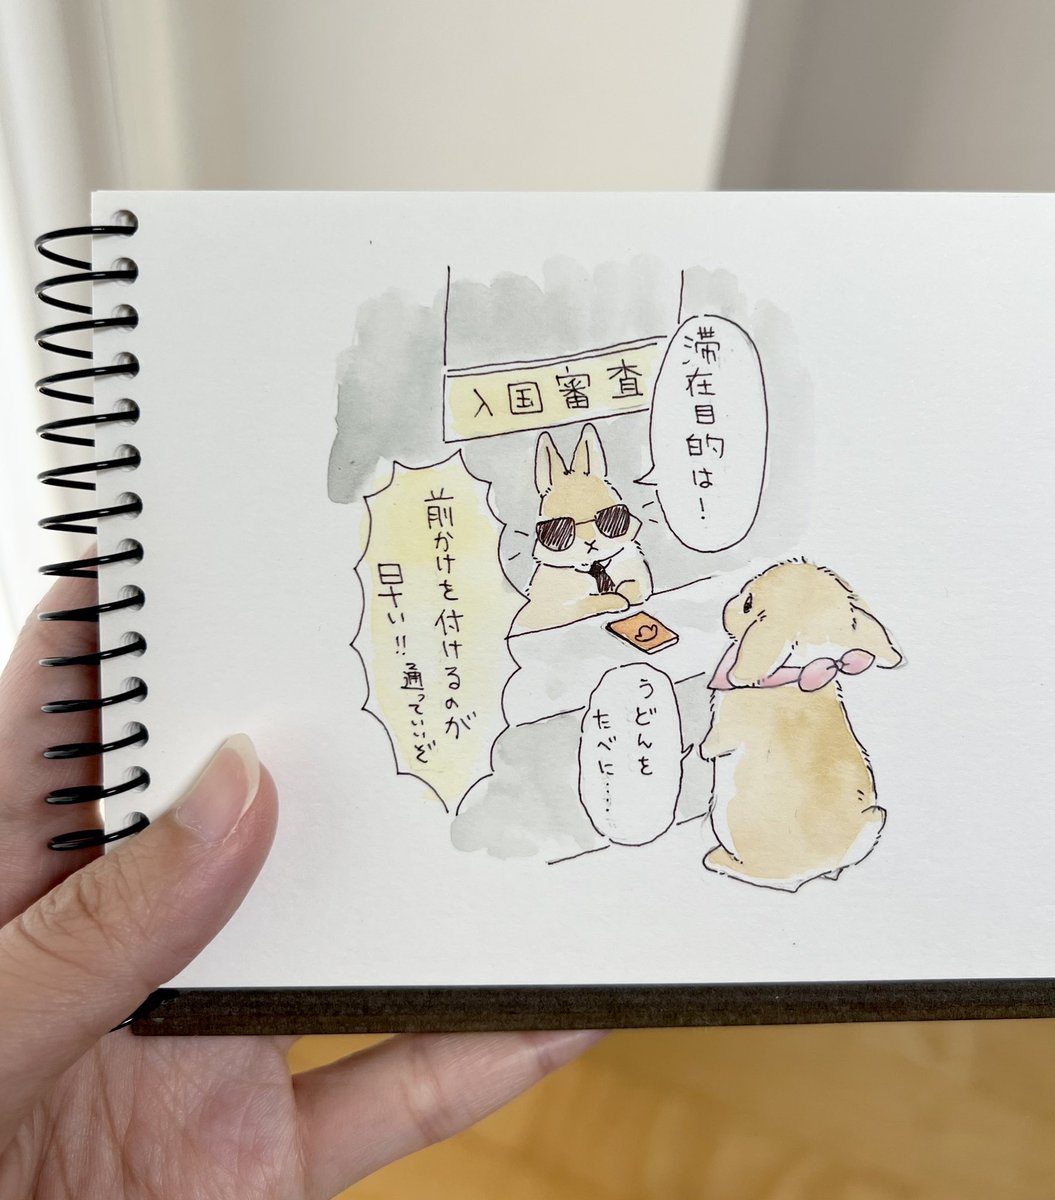 入国審査
滞在目的は！
うどんを
たべに……
前かけを付けるのが
早い!!
通っていいぞ